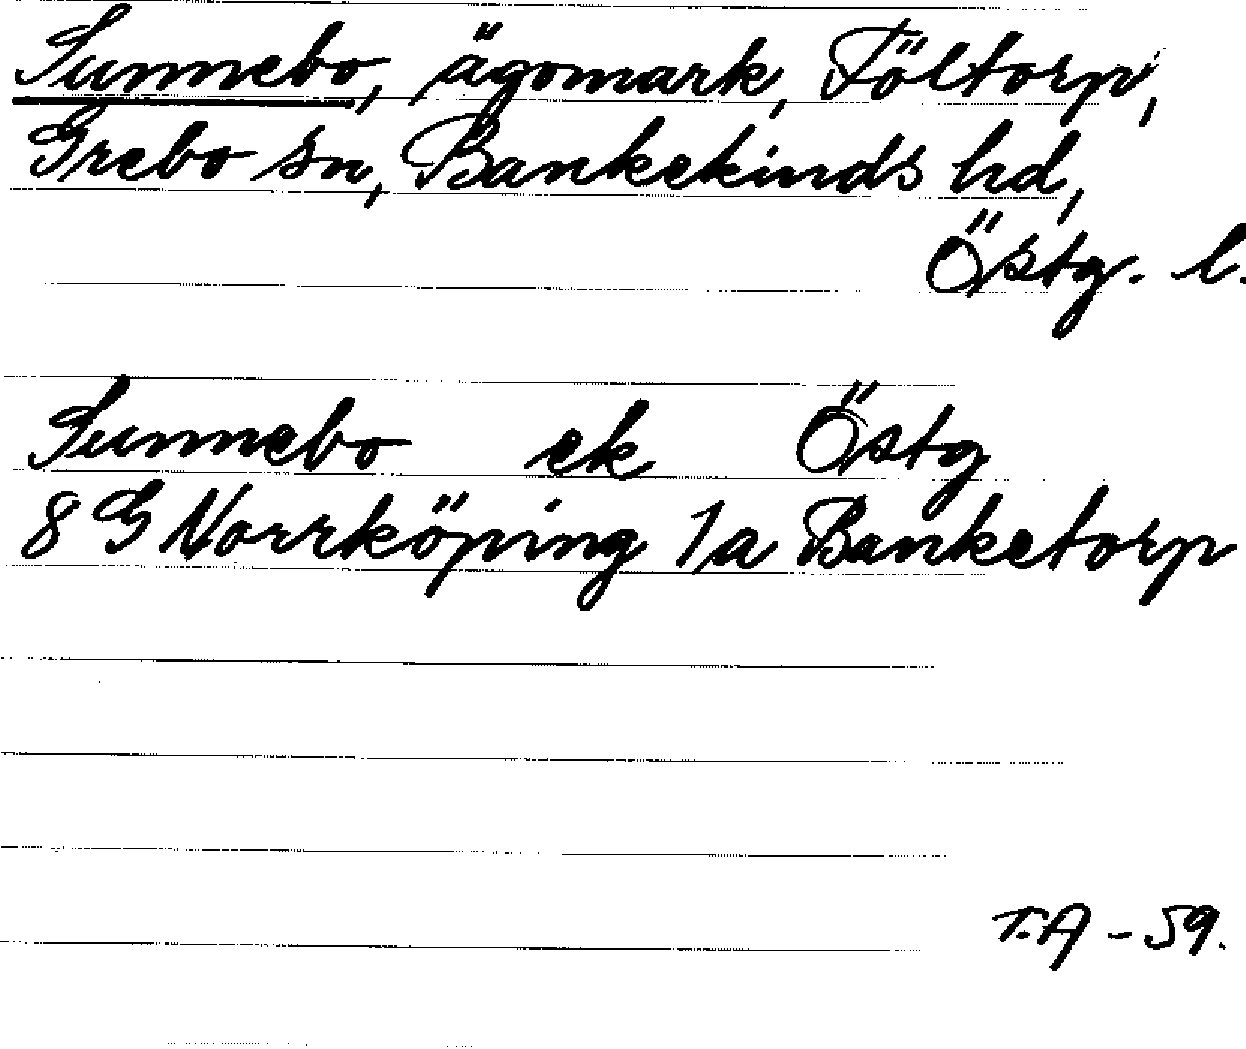 Sunnebo, ägomark, Föltorp,
Grebo sn, Bankekinds hd,
Östg. l.
Sunnebo ek Östg
8 G Norrköping 1a Banketorp
T.A - 59.